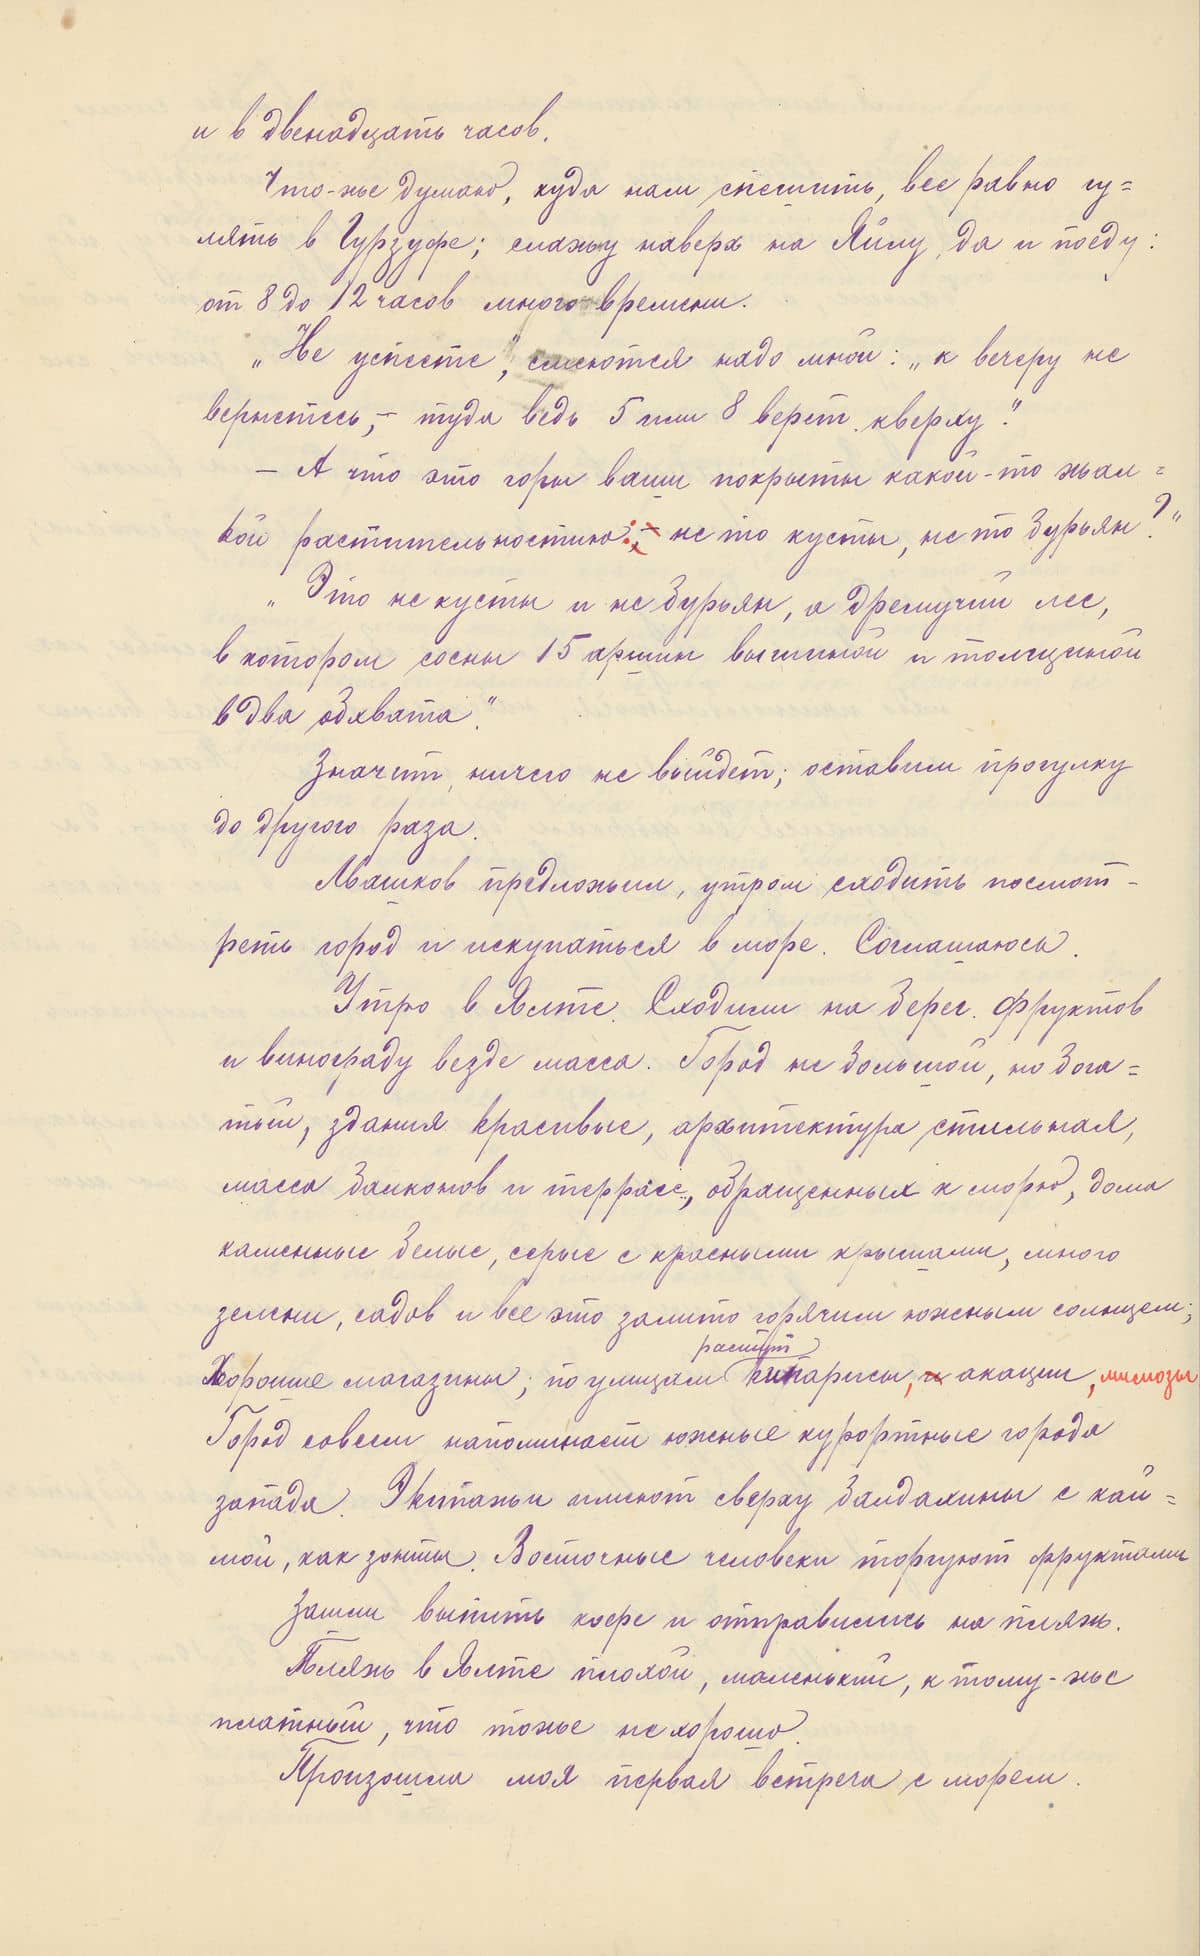 и в двенадцать часов.
Что-же думаю, куда нам спешить, все равно гу=
лять в Гурзуфе; слажу наверх на Яйлу, да и поеду:
от 8 до 12 часов много времени.
„Не успеете", смеются надо мной: „к вечеру не
вернетесь, – туда ведь 5 или 8 верст кверху".
— А что это горы ваши покрыты какой-то жал=
кой растительностию: не то кусты, не то бурьян?"
„Это не кусты и не бурьян, а дремучий лес,
в котором сосны 15 аршин вышиной и толщиной
в два обхвата".
Значит, ничего не выйдет; оставим прогулку
до другого раза.
Ивашков предложил, утром сходить посмот-
реть город и искупаться в море. Соглашаюсь.
Утро в Ялте. Сходили на берег. Фруктов
и винограду везде масса. Город не большой, но бога=
тый, здания красивые, архитектура стильная,
масса балконов и террасс, обращенных к морю, дома
каменные белые, серые с красными крышами, много
зелени, садов и все это залито горячим южным солнцем;
Хорошие магазины; по улицам растут кипарисы, акации, мимозы
Город совсем напоминает южные курортные города
запада. Экипажи имеют сверху балдахины с кай=
мой, как зонты. Восточные человеки торгуют фруктами
Зашли выпить кофе и отправились на пляж.
Пляж в Ялте плохой, маленький, к тому-же
платный, что тоже не хорошо.
Произошла моя первая встреча с морем.